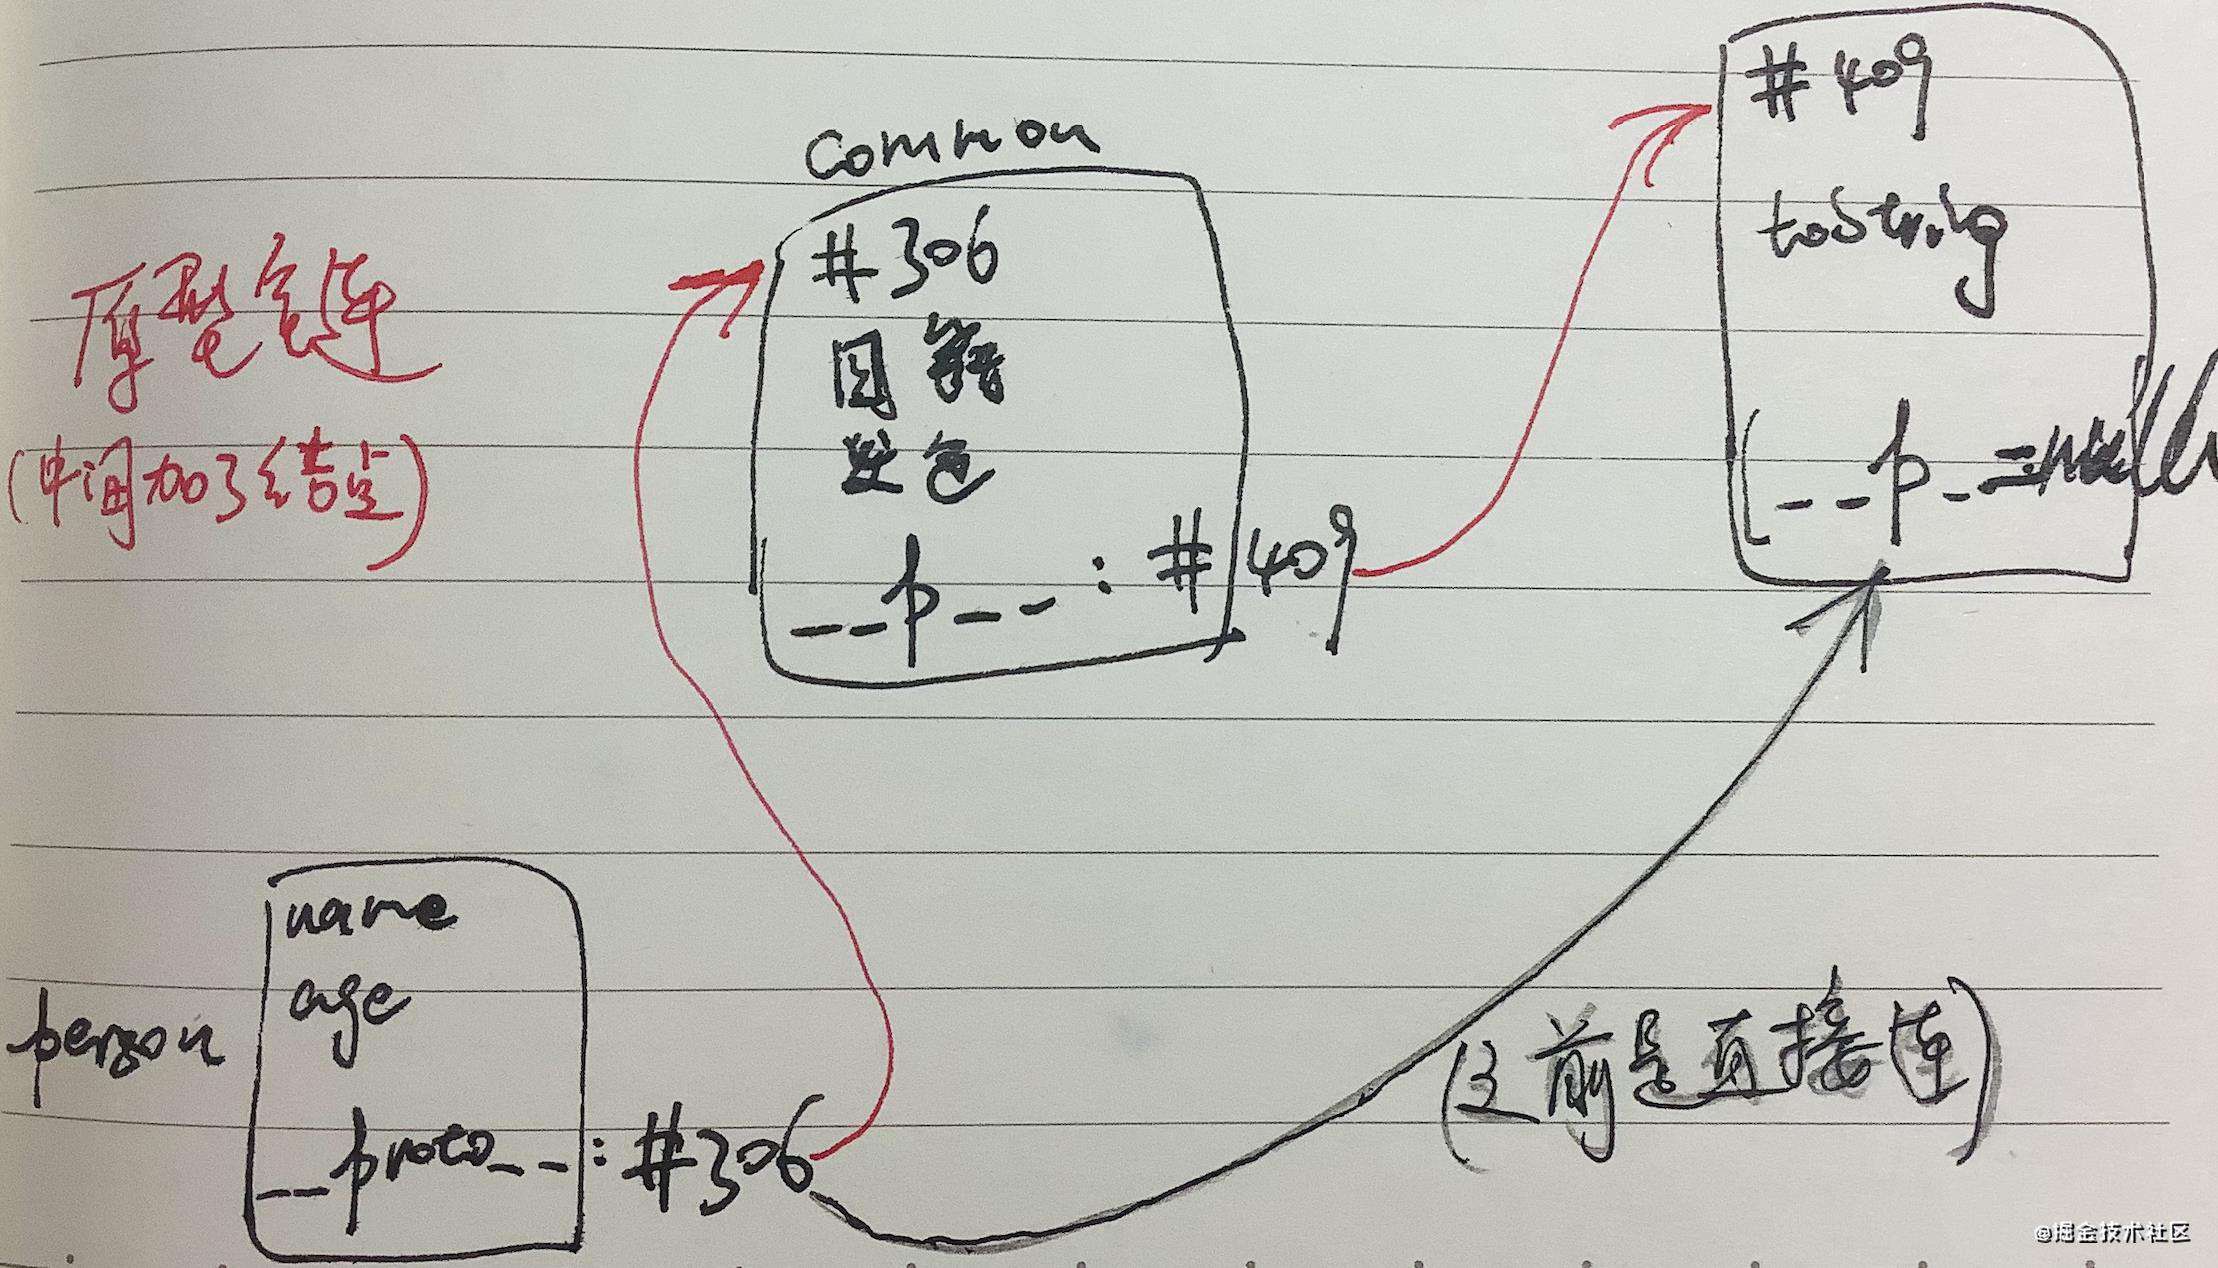 common
#306
国籍
发色
__p__: #409
#409
toString
__p_=null
原型链
(中间加了结点)
person
name
age
__proto__: #306
(之前是直接连)
@掘金技术社区